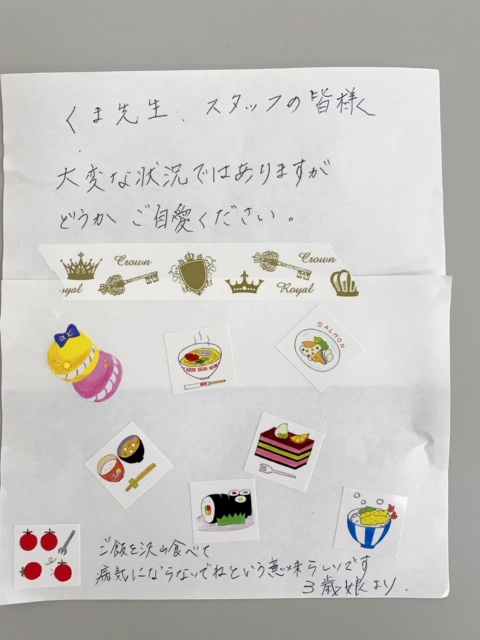 くま先生、スタッフの皆様へ
大変な状況ではありますが
どうか ご自愛ください。
Crown Crown
Royal Royal
SALMON
ご飯を沢山食べて
病気にならないでねという意味らしいです
3歳娘より.